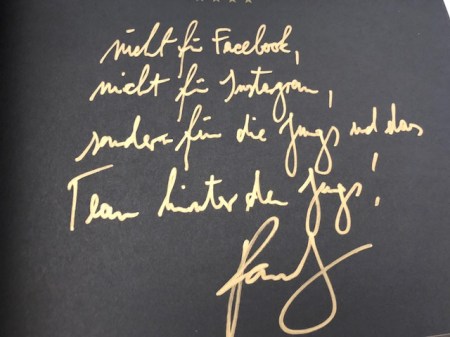 nicht für Facebook,
nicht für Instagram,
sondern für die Jungs und das
Team hinter den Jungs!